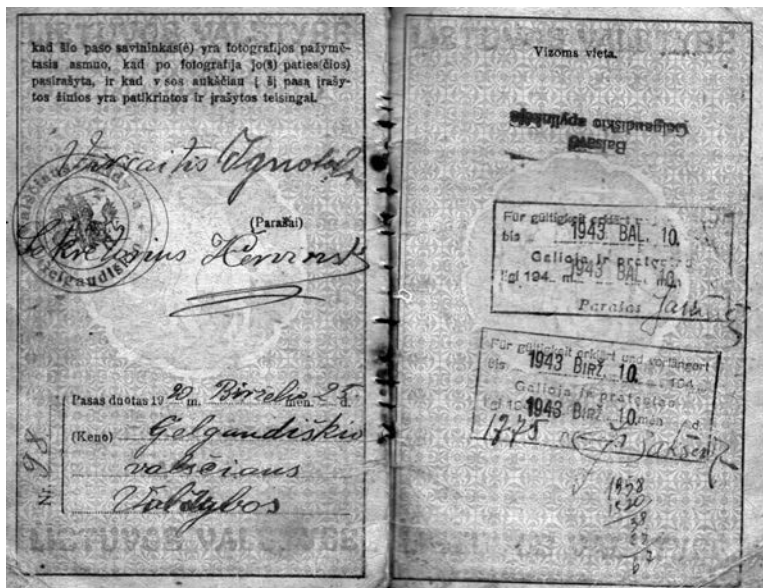 kad šio paso savininkas(ė) yra fotografijos pažymė-
tasis asmuo, kad po fotografija jo(s) paties(čios)
pasirašyta, ir kad v sos aukščiau į šį pasą įrašy-
tos žinios yra patikrintos ir įrašytos teisingai.
(Parašai)
Sekretorius
Pasas duotas 1920 m. Birželio mėn. 25 d.
(Keno) Gelgaudiškio
valsčiaus
Valdybos
Nr. 98
LIETUVOS VALSTYBĖ
Vizoms vieta.
Gelgaudiškio apylinkėje
Für gültigkeit erklärt
bis 1943 BAL. 10.
Galioja ir pratęsta
ligi 194 m. 1943 BAL. 10. mėn
Parašas
Für gültigkeit erklärt und verlängert
bis 1943 BIRŽ. 10. 194
Galioja ir pratęsta
ligi 194 1943 BIRŽ. 10. mėn d.
1775
1958
1920
38